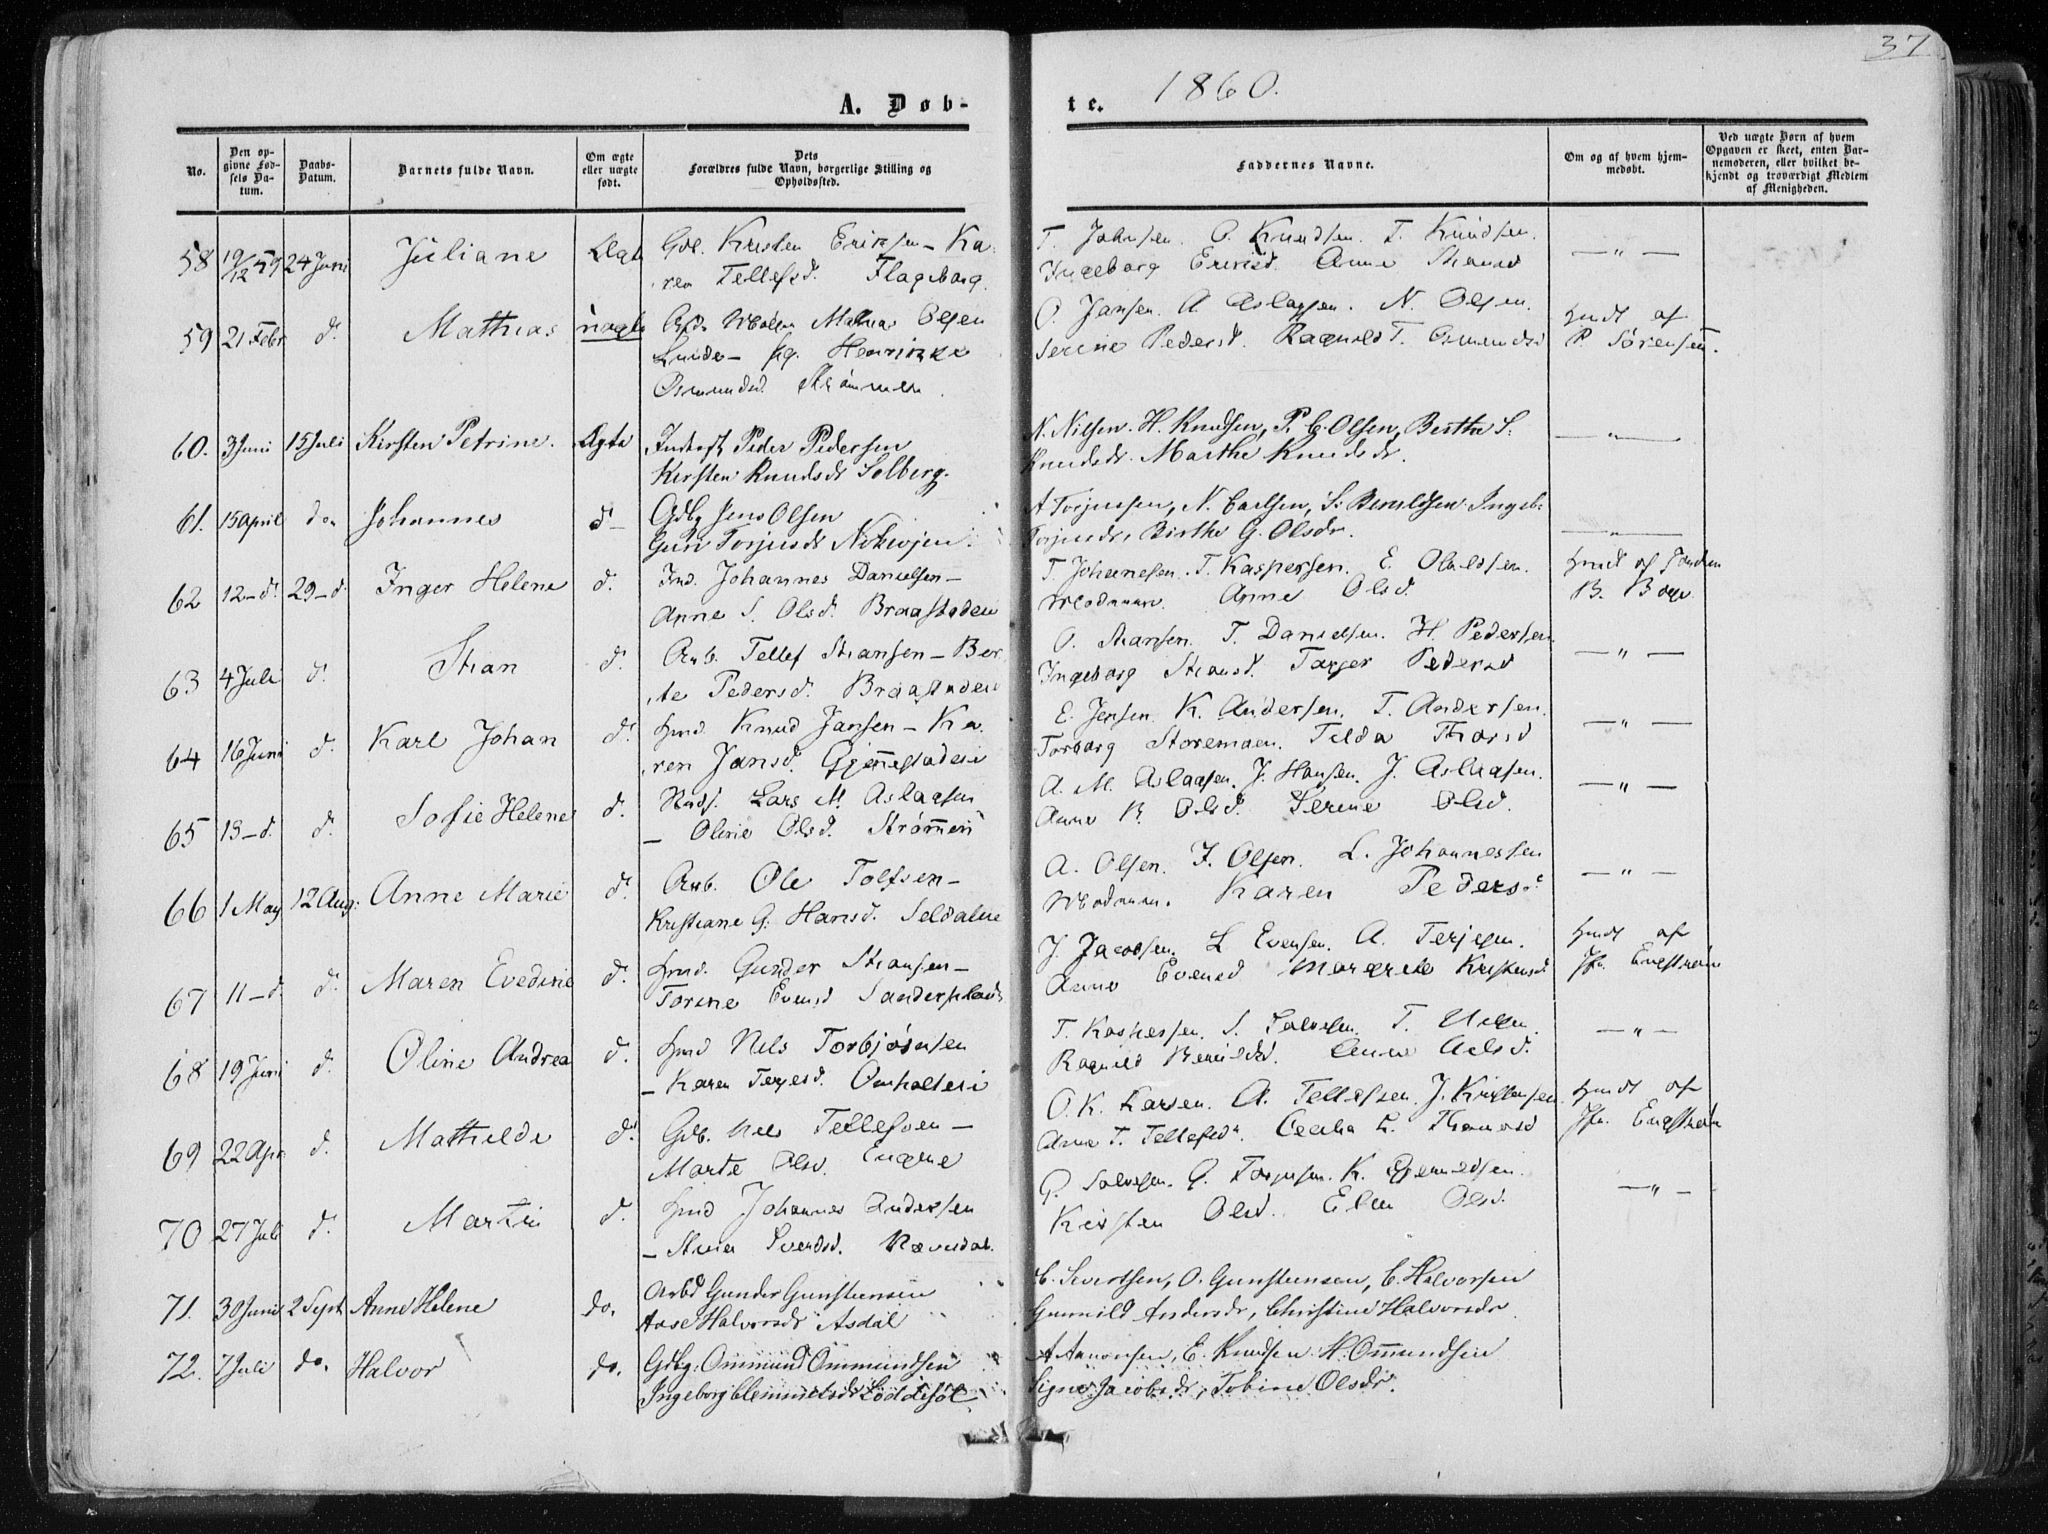 37
1860.
A. Døb-
te.
No.
Den op-
givne Fød-
sels Da-
tum.
Daabs-
Datum.
Barnets fulde Navn.
Om ægte
eller uægte
født.
Dets
Forældres fulde Navn, borgerlige Stilling og
Opholdssted.
Faddernes Navne.
Om og af hvem hjem-
medøbt.
Ved uægte Børn af hvem
Opgaven er skeet, enten Bar-
nemoderen, eller hvilket be-
kjendt og troværdigt Medlem
af Menigheden.
58 19/12 59 24 Juni Juliane Ægte Gdl. Kristen Eriksen - Ka-
ren Tellefsd. Flageborg.
T. Johnsen. O. Knudsen. T. Knudsen.
Ingeborg Eriksd. Anne
— " —
59 21 Febr d. Mathias uægte Mathias Olsen
Henrikke
Osmundsd. Strømmen.
O. Jansen. A Aslagsen. N. Olsen.
Serine Pedersd. Ragnild T. Osmundsd
Hmdt af
P. Sørensen.
60. 3 Juni 15 Juli Kirsten Petrine. Ægte Inderst Peder Pedersen
Kirsten Knudsdr Solberg.
N. Nilsen. H. Knudsen, P. G. Olsen, Berthe S.
Knudsdr. Marthe Knudsdr.
— " —
61. 15 April do. Johannes d- Gdbg Jens Olsen
Guri Torjusdr
A Torjussen, N. Carlsen, Ingeb.
Torjusdr, Birthe G. Olsdr.
— " —
62 12 - d. 29 - d. Inger Helene d. Ind. Johannes Danielsen -
Anne S. Olsd. Braastaden
T. Johannesen. T. Kaspersen. E.
Modcrm. Anne Olsd.
Hmdt af
B. Boye
63 4 Juli d. Stian d. Arb. Tellef Stiansen - Ber
te Pedersd. Braastaden
O. Stiansen. T. Danielsen. H. Pedersen
Ingeborg Stiansd. Torjer Pedersd
— " —
64 16 Juni d. Karl Johan d. Hmd. Knud Jansen - Ka
ren Jansd. Gjennestaden
E. Jensen. K. Andersen. T. Andersen.
Torborg Storemoen. Tilda
— " —
65 13 - d. d. Sofie Helene d. Lars M. Aslagsen
- Oline Olsd. Strømmen
A. M. Aslagsen. J. Hansen. J. Aslagsen.
Anne B. Olsd. Serine Olsd.
— " —
66 1 May 12 Aug: Anne Marie d. Arb. Ole Tolfsen -
Kristiane G. Hansd. Seldalen
A. Olsen. J. Olsen. L. Johannessen
Karen Pedersd.
— " —
67 11 - d. d. Maren Evedine d. Hmd. Gunder Stiansen -
Torine Evensd
J. Jacobsen. L Evensen. A. Terjesen.
Anne Evensd Margrete Kristensd
Hmdt af
Jfr. Engstrøm
68 19 Juni d. Oline Andrea d. Hmd Nels Torbjørnsen
- Karen Terjesd. Omholten
T. Kaspersen. S. T.
Ragnild Anne Aslsd.
— " —
69 22 Apr. d. Mathilde d. Gdb. Nels Tellefsen -
Marte Olsd. Engene
O. K. Larsen. A. Tellefsen. J. Kristensen
Anne T. Tellefsd. Cecilia L.
Hmdt af
Jfr. Engstrøm
70 27 Juli d. Martin d. Hmd Johannes Andersen
- Svendsd.
G. Salvesen. G. Torjusen. K.
Kirsten Olsd. Elen Olsd.
— " —
71. 30 Juni 2 Sept. Anne Helene do. Arbd Gunder Gunstensen
Aase Halvorsdr Asdal
C. Sivertsen, O. Gunstensen, C. Halvorsen
Gunnild Andersdr, Christine Halvorsdr.
72. 7 Juli do. Halvor do. Gdbg: Ommund Ommundsen
Ingeborg Clemmetsdr Løddesøl
A Aanonsen, E. Knudsen. H. Ommundsen
Signe Jacobsdr, Tobine Olsdr.